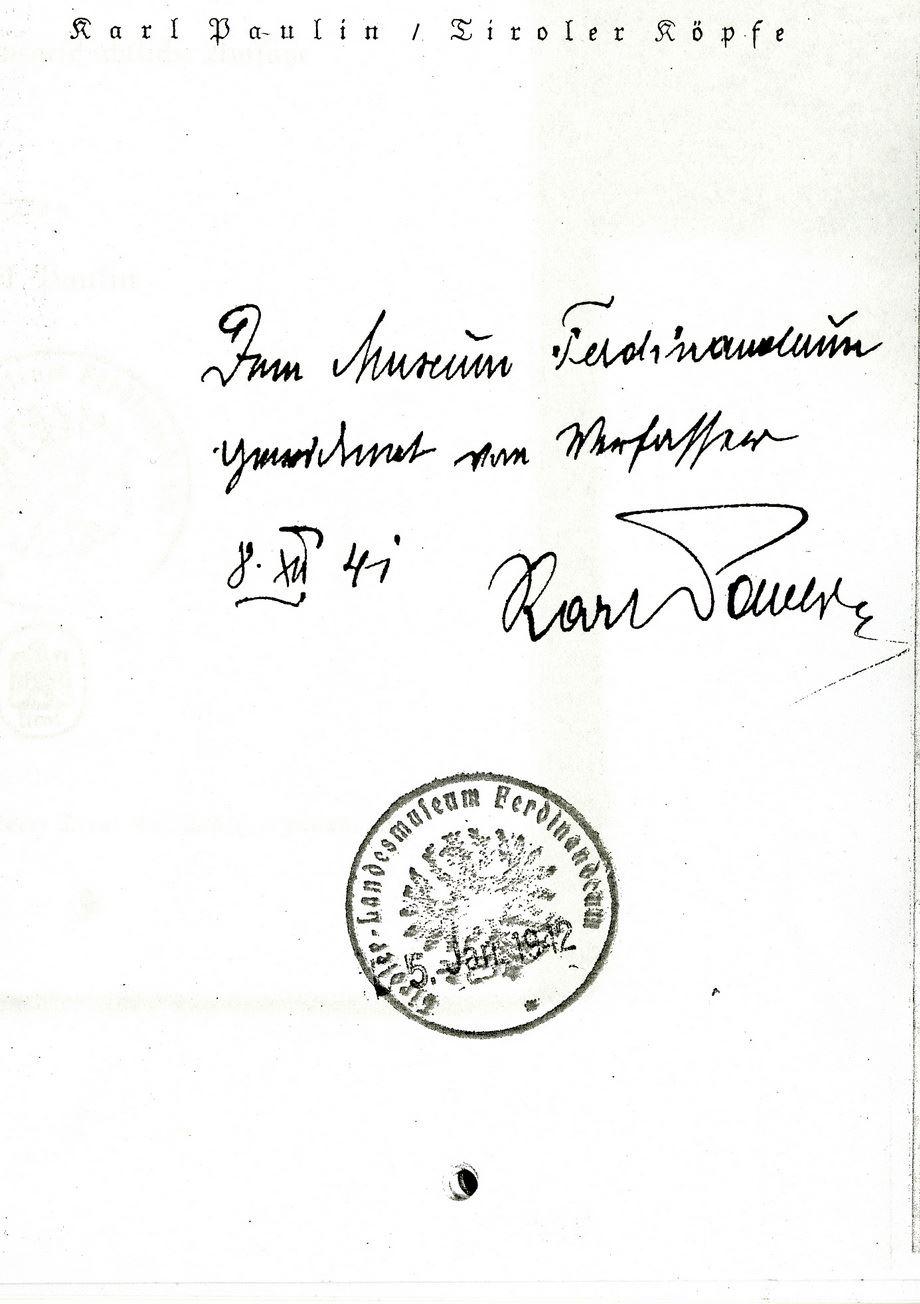 Karl Paulin / Tiroler Köpfe
Dem Museum Ferdinandeum
gewidmet vom Verfasser
8. XII 41
Karl Paulin
Tiroler-Landesmuseum Ferdinandeum
5. Jan. 1942